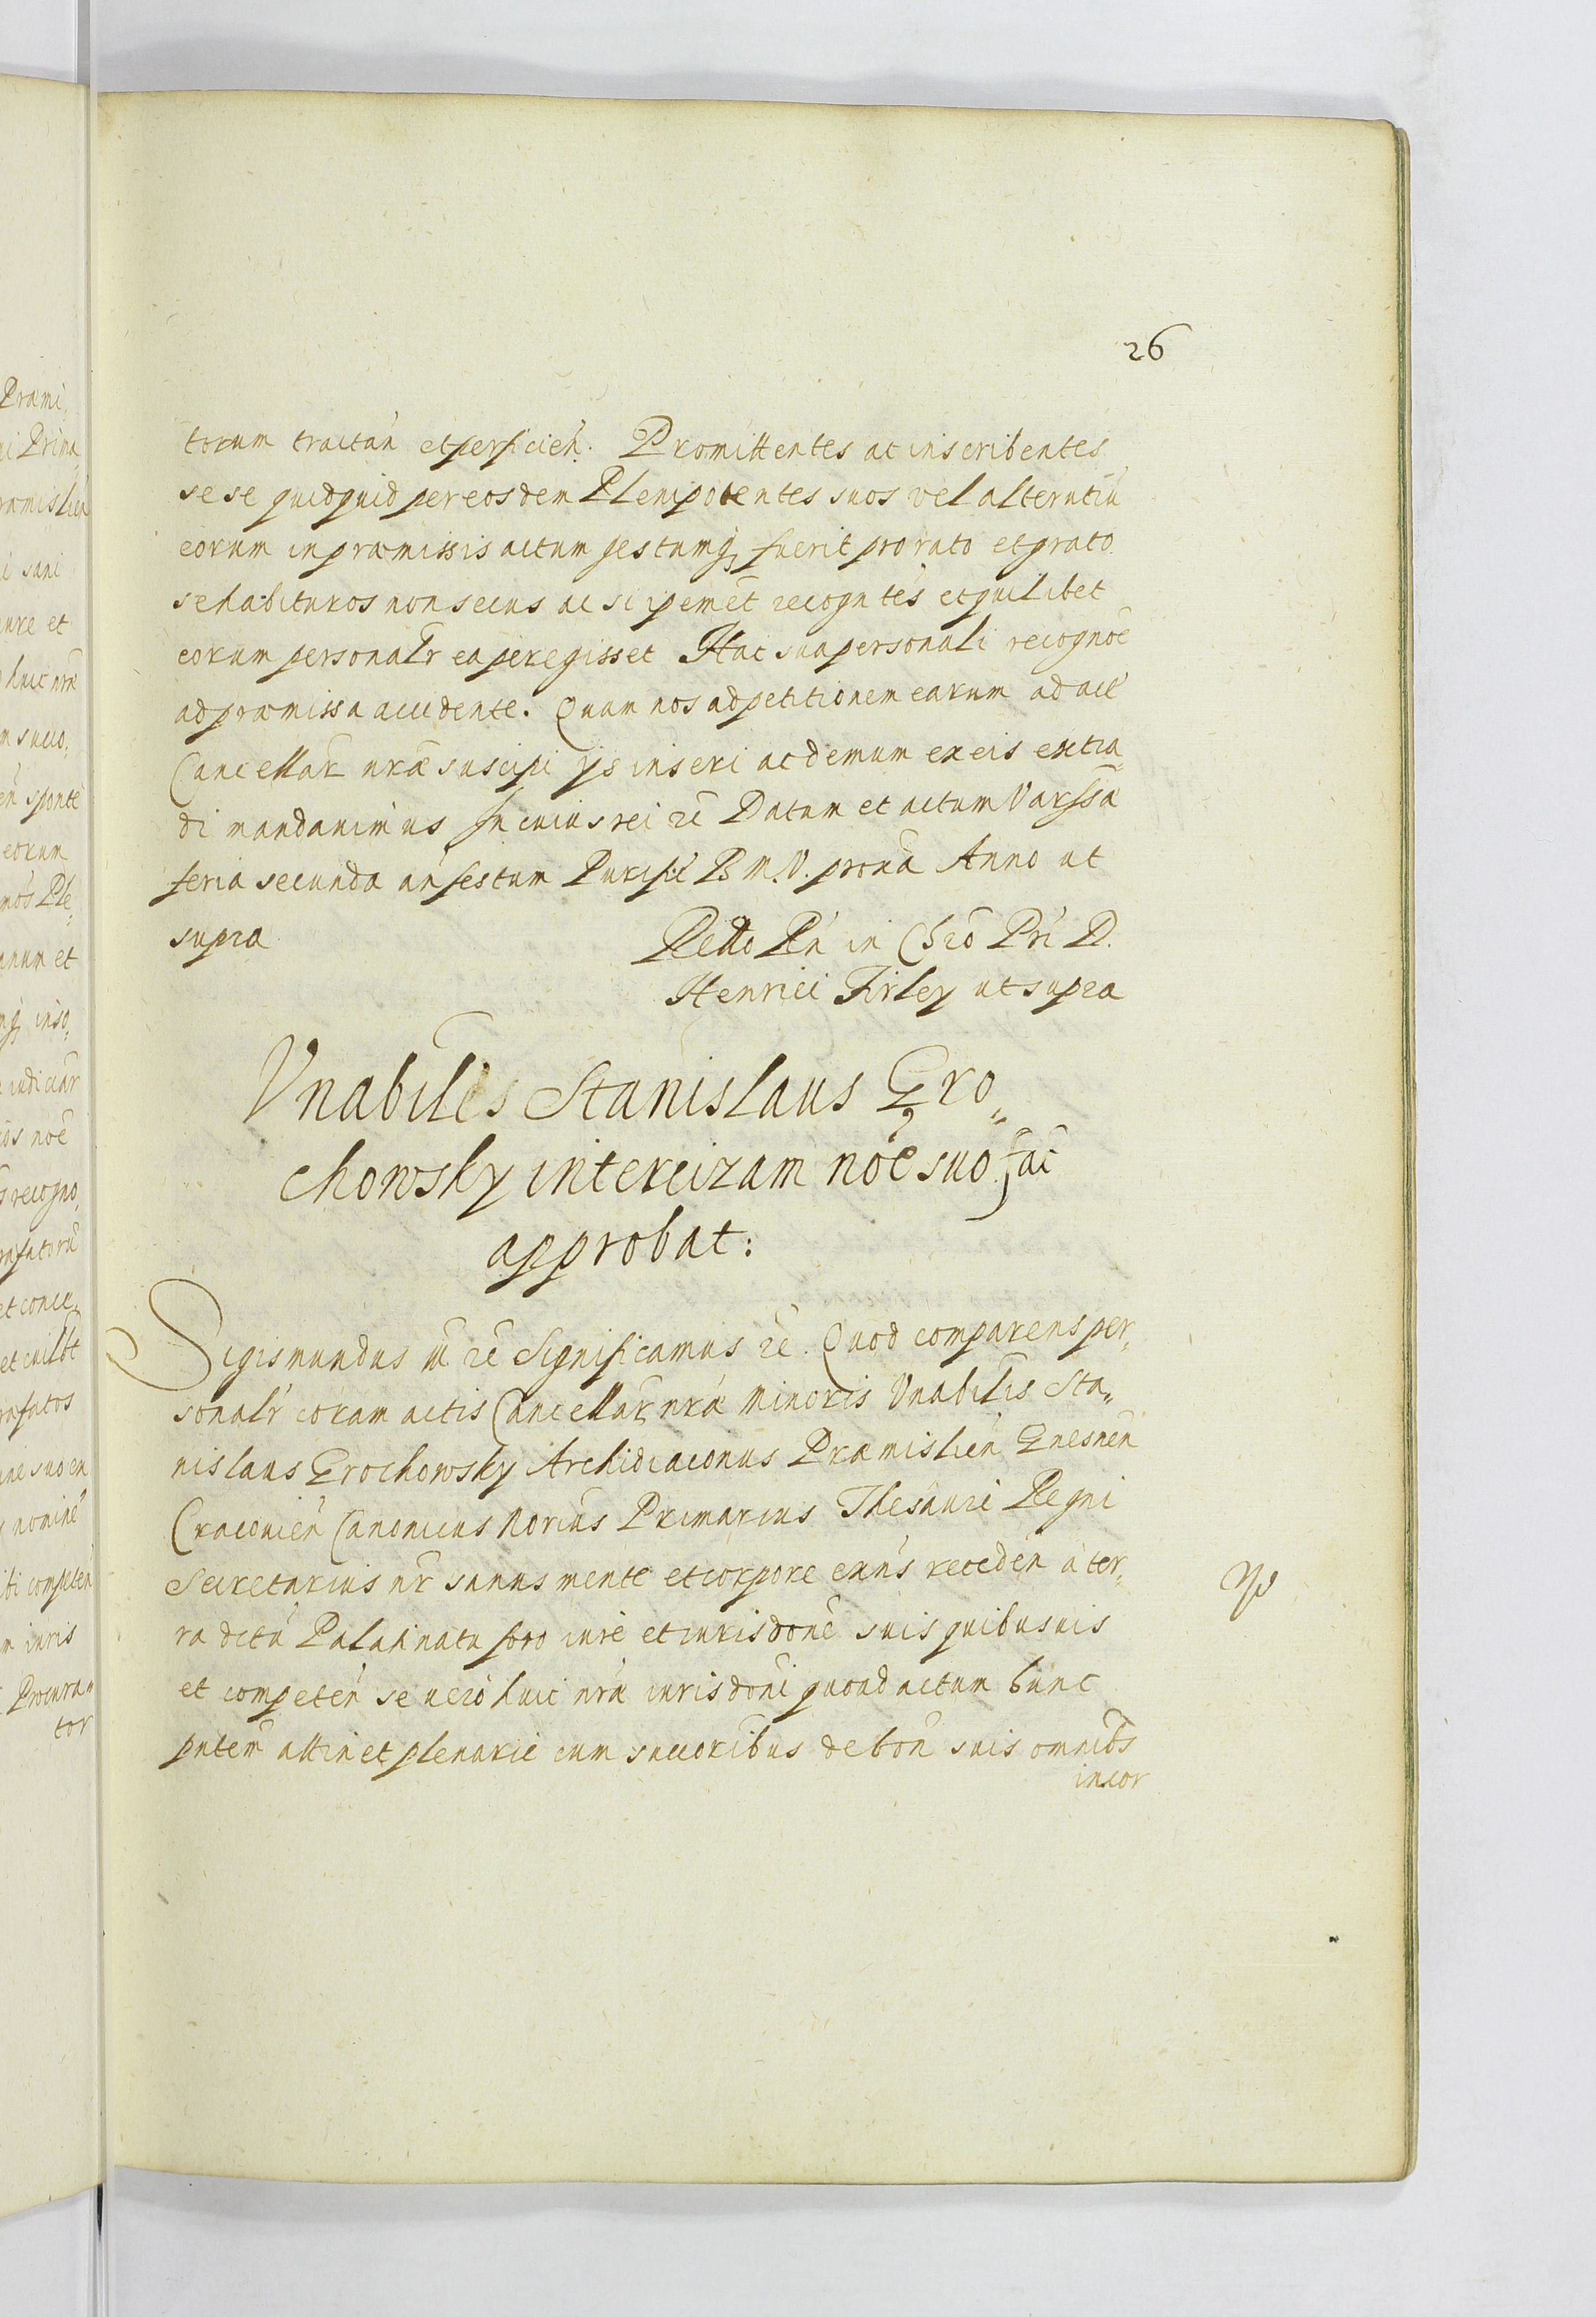 26
torum tractan̄ et perficien̄. Promittentes ac inscribentes
se se quidquid per eosdem Plenipotentes suos vel alterutiū
eorum in præmissis actum gestumq̨ fuerit pro rato et grato
se habituros non secus ac si ipemet̄ recogn̄tes et quilibet
eorum personalr̄ ea peregisset Hac sua personali recognoē
ad præmissa accedente. Quam nos ad petitionem earum ad acē
Cancellar̄ nr̄æ suscipi ys inseri ac demum ex eis extra„
di mandavimus In cuius rei zē Datum et actum Varssā
feria secunda an̄ festum Purif̄c B M. V. pronā Anno ut
supra
Rel̄lo Rn̄ in Chrō Prī D.
Henrici Firley ut supra
Vnabilēs Stanislaus Gro„
chowsky intercizam noē suo fac̄
approbat:
Sigismundus iii zē Significamus zē. Quod comparens per„
sonalr̄ coram actis Cancellar̄ nr̄æ Minoris Vnabilīs Sta„
nislaus Grochowsky Archidiaconus Præmislien̄ Gnesnen̄
Cracovien̄ Canonicus Norius̄ Primarius Thesauri Regni
Secretarius nr̄ sanus mente et corpore exn̄s receden̄ à ter„
ra dctū Palatinatu foro iure et iurisdonē suis quibusuis
et competen̄ se vero huic nr̄æ iurisdonī quoad actum hunc
pn̄tem attinet plenarie cum succoribus de bon̄ suis omnib̄s
incor